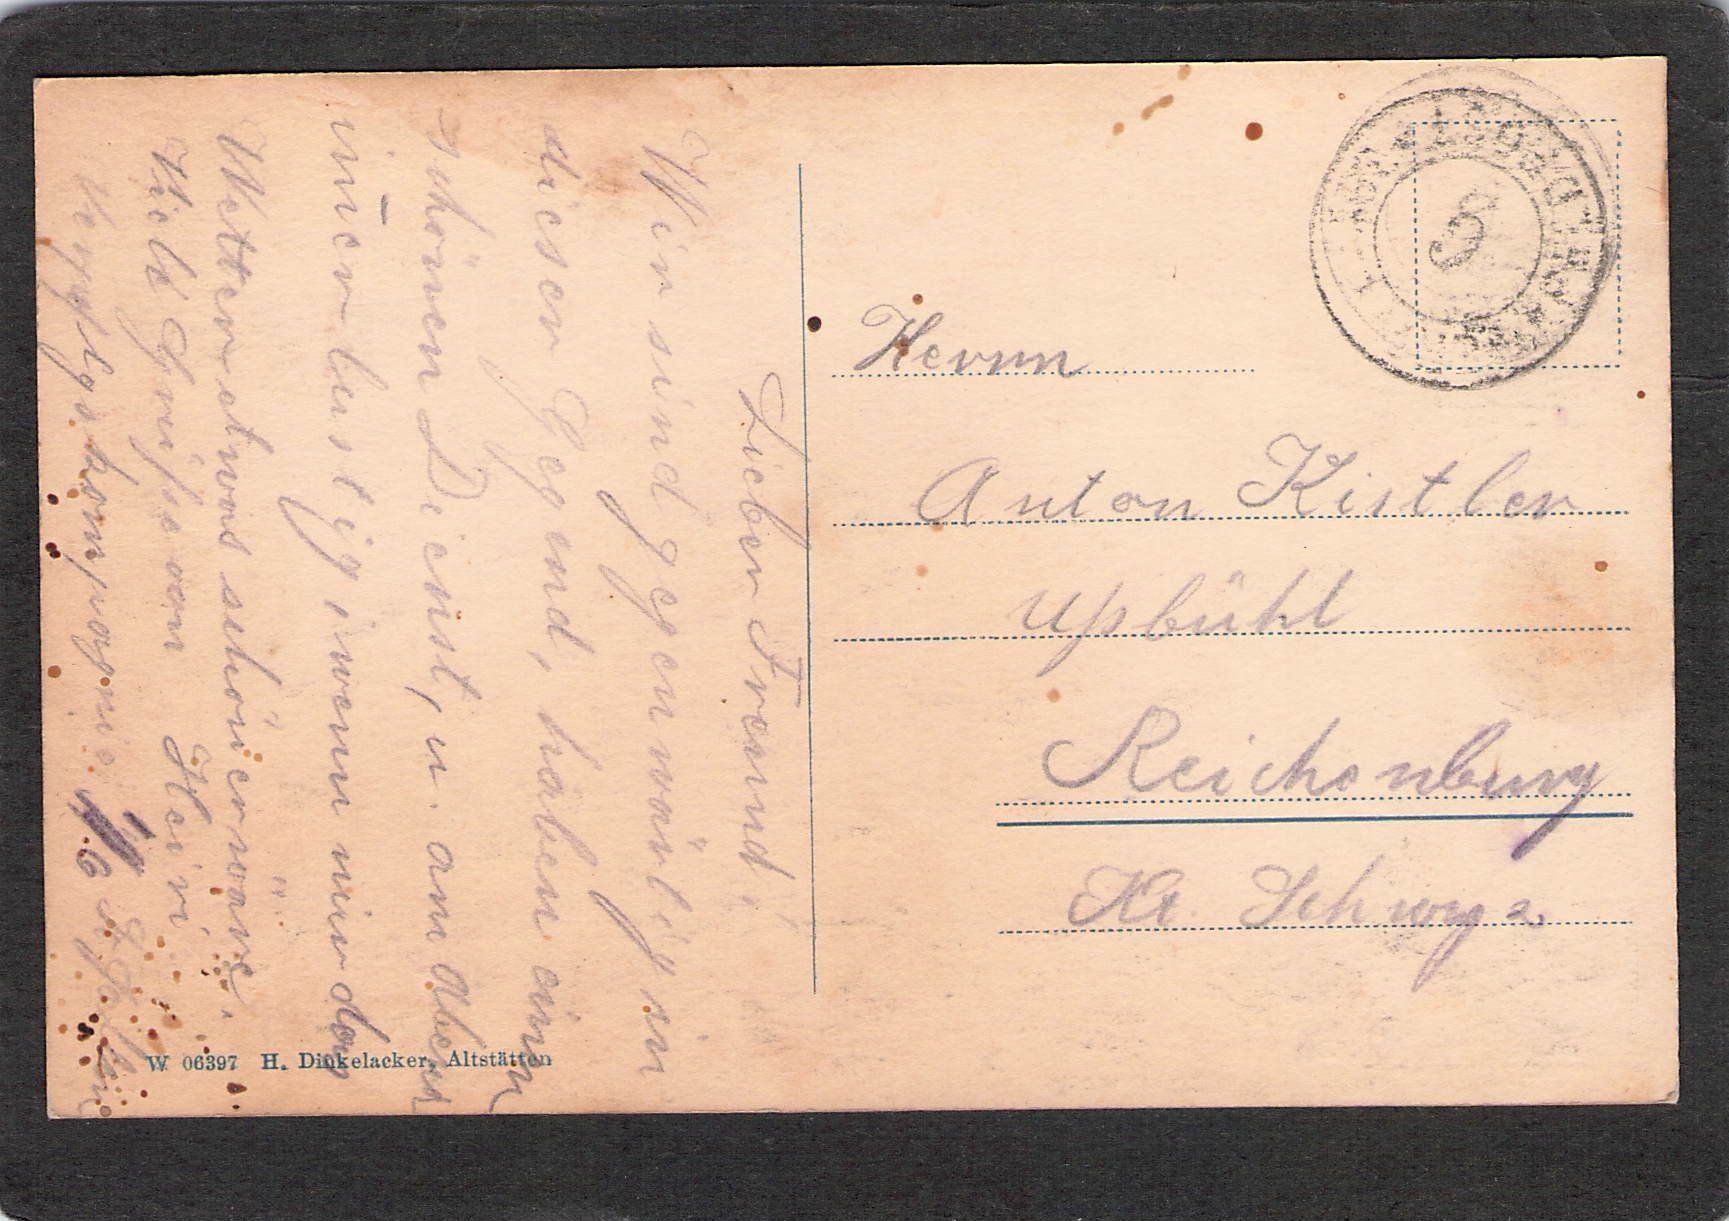 Lieber Freund!
Wir sind gegenwärtig in
dieser Gegend, haben einn
schönen Dienst, u. am Abend
im̄er lustig, wenn nur das
Wetter etwas schöner wäre.
Viele Grüsse von Heiri
Verpflgskompagnie 4/6
Herrnn
Anton Kistler
Reichenburg
Kt. Schwyz.
FELDPOST
8
W 06397 H. Dinkelacker, Altstätten